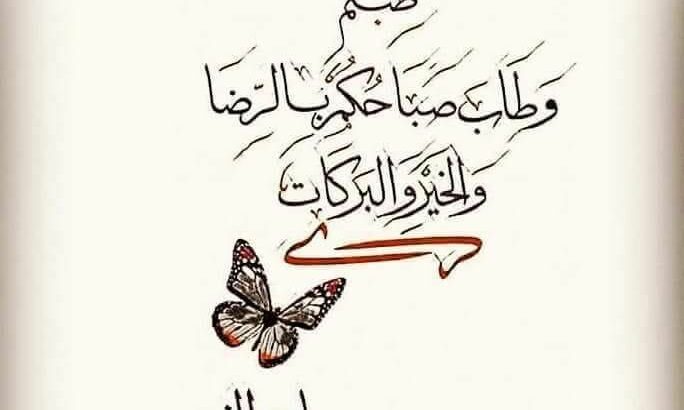 طبتم
وَطَابَ صَبَاحُكُمْ بِالرِّضَا
وَالخَيْرِ وَالبَرَكَات